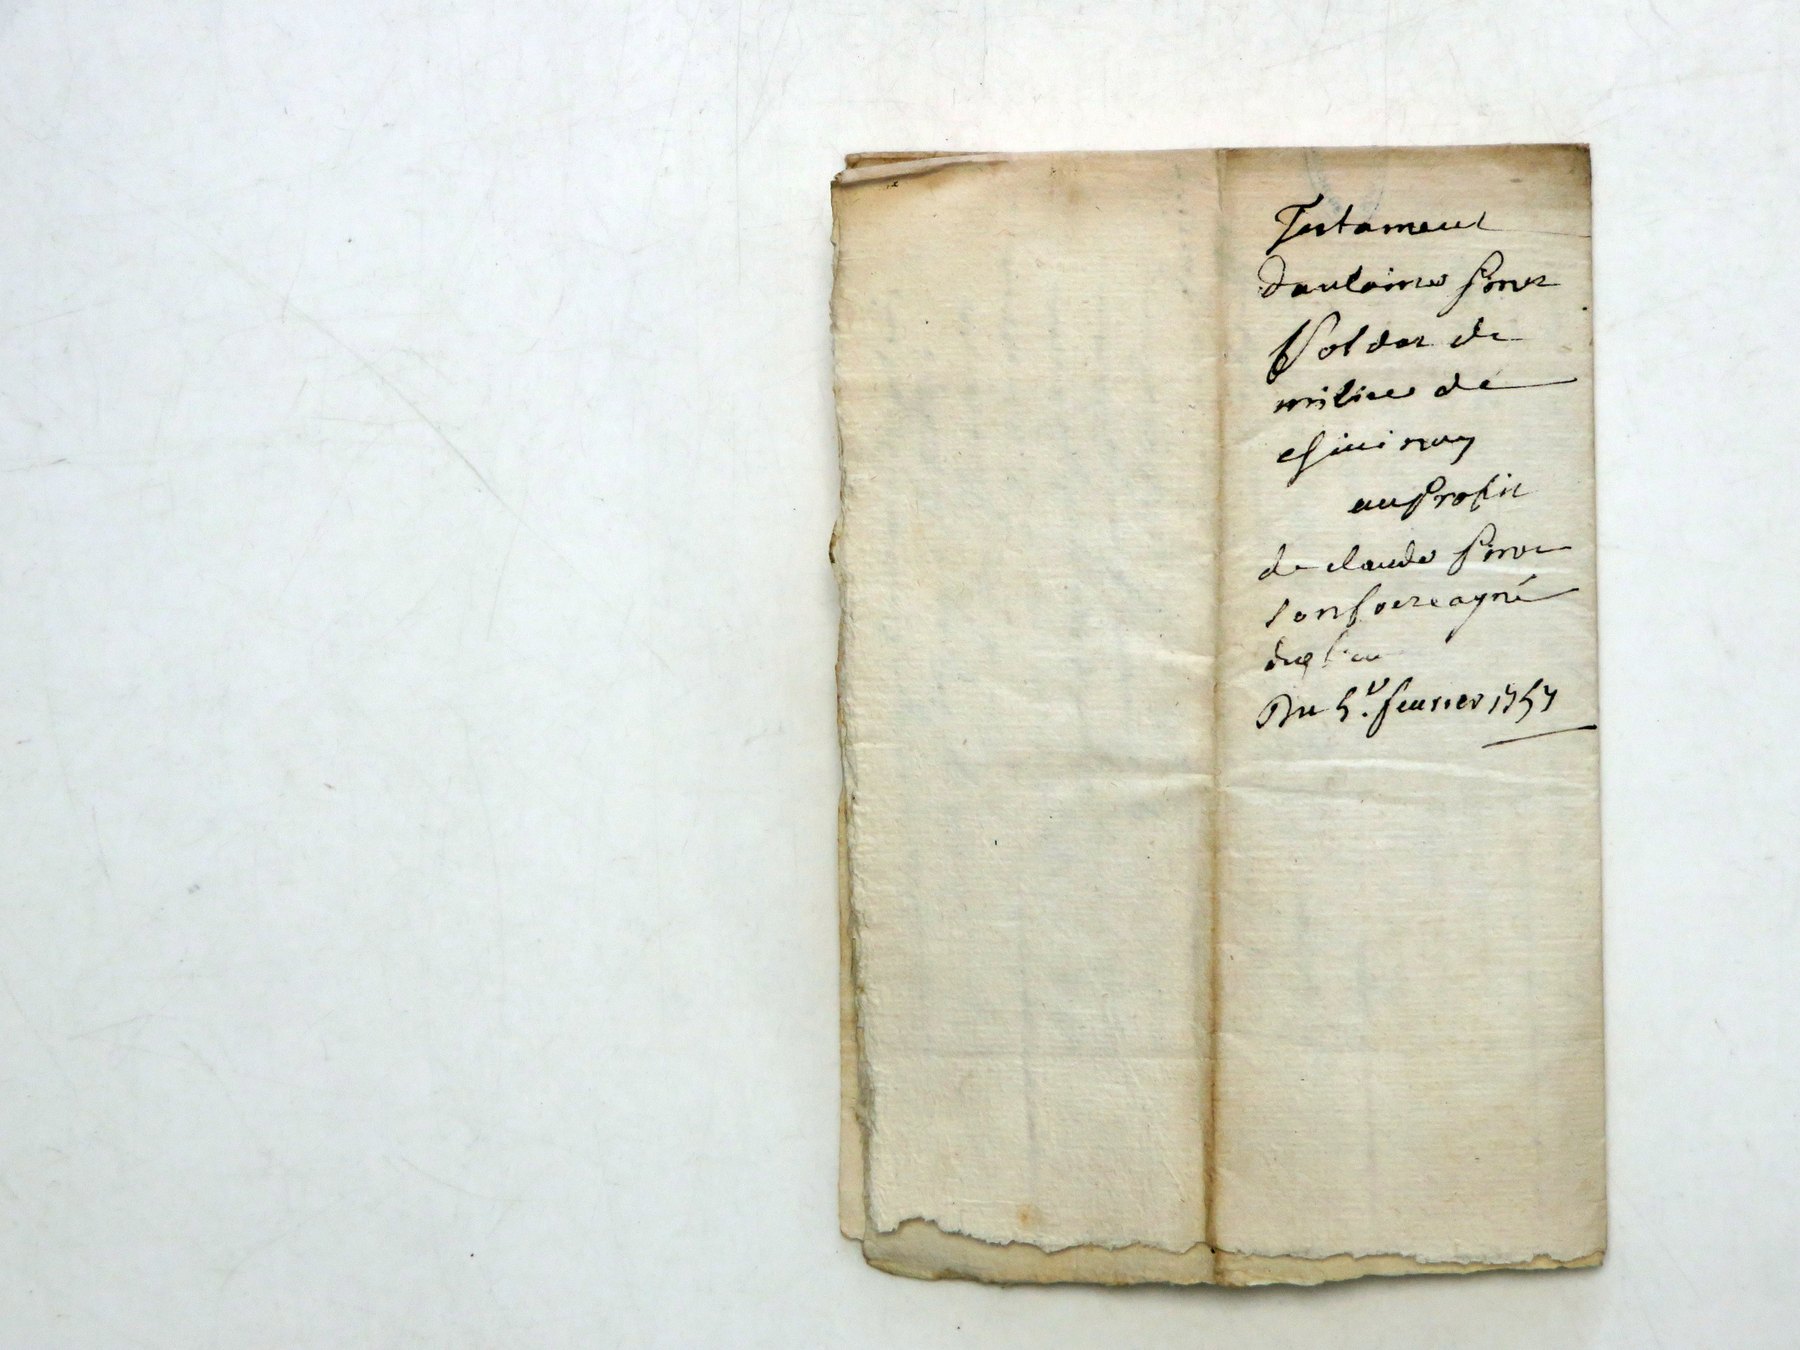 Testament
dantoine piros
Soldat de
milice de
chivinay
au profit
de claude piros
son frere ayné
du
Du 5e. feurier 1757